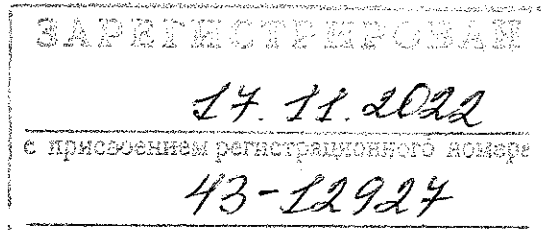 ЗАРЕГИСТРИРОВАН
17.11.2022
с присвоением регистрационного номера
43-12927